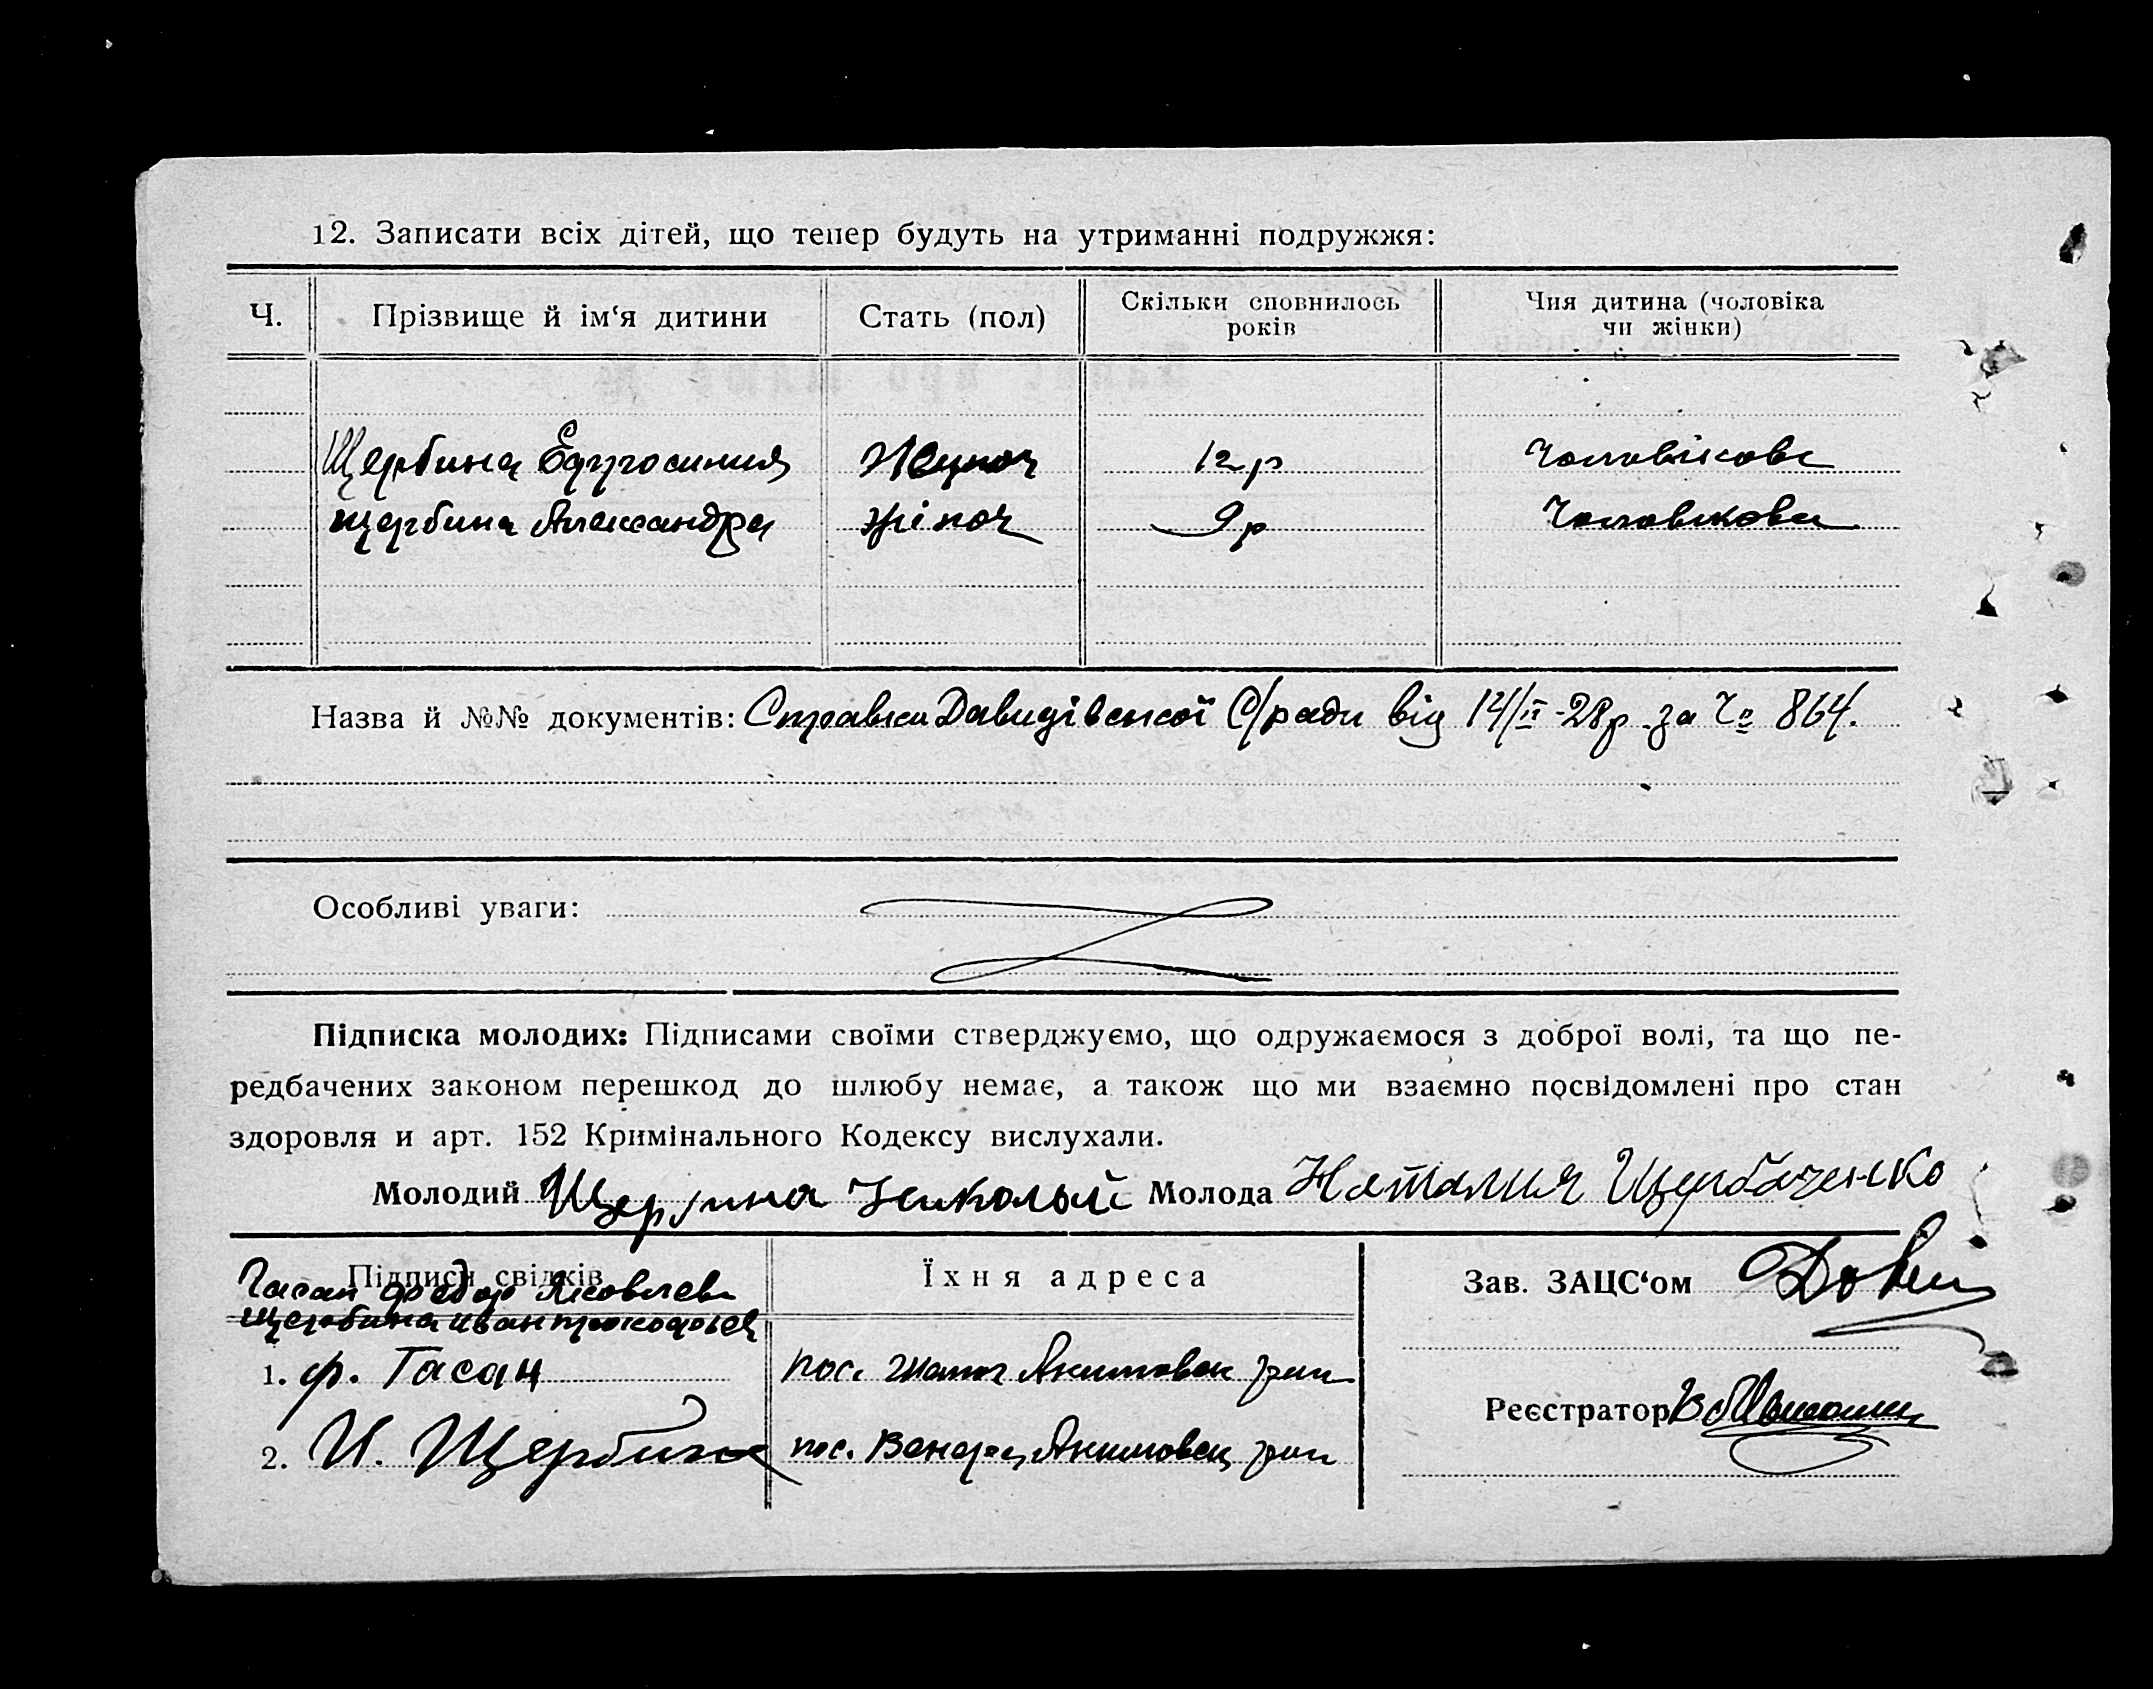 12. Записати всіх дітей, що тепер будуть на утриманні подружжя:
Ч. Прізвище й ім‘я дитини Стать (пол) Скільки сповнилось років Чия дитина (чоловіка чи жінки)
Щербина Ефросиния 12 р Чоловікова
Щербина Александра жіноч 9 р Чоловікова
Назва й №№ документів: Справка Давидівської С/ради від 14/II-28р за Чо 864.
Особливі уваги:
Підписка молодих: Підписами своїми стверджуємо, що одружаємося з доброї волі, та що пе-
редбачених законом перешкод до шлюбу немає, а також що ми взаємно посвідомлені про стан
здоровля и арт. 152 Кримінального Кодексу вислухали.
Молодий Щербина Николай Молода Наталия Щербаченко
Підписи свідків Їхня адреса Зав. ЗАЦС‘ом
Гасан Федор Яковлев
Щербина Иван
1. ф. Гасан пос. Акимовск
2. И. Щербина пос. Акимовск
Реєстратор